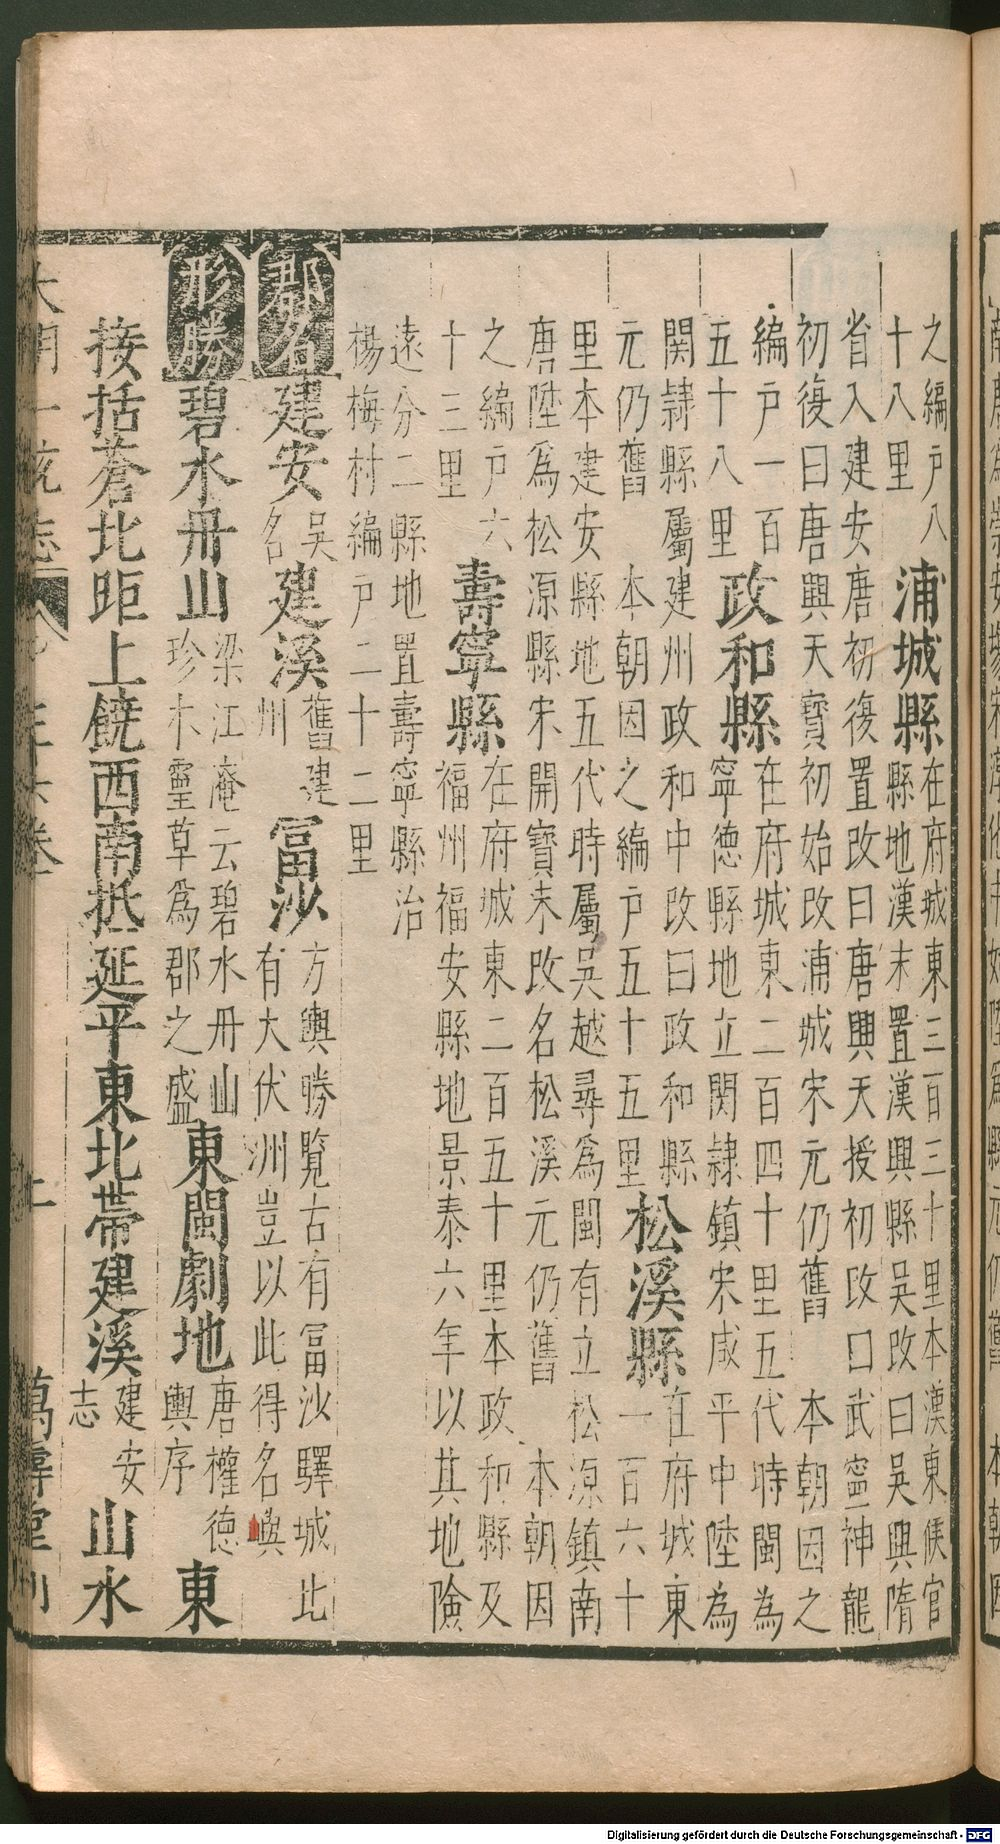 之編戸八十八里浦城縣在府城東三百三十里本漢東候官縣地漢末置漢興縣吳改曰吳興隋
省入建安唐初復置改曰唐興天授初改口武寧神龍初復曰唐興天寶初始改浦城宋元仍舊　本朝因之
編戸一百五十八里政和縣在府城東二百四十里五代時閩為寧德縣地立関隸鎮宋咸平中陞為
関隸縣屬建州政和中改曰政和縣元仍舊　本朝因之編戸五十五里松溪縣在府城東一百六十
里本建安縣地五代時屬吳越尋爲閩有立松源鎮南唐陞爲松源縣宋開寶末改名松溪元仍舊　本朝因
之編戸六十三里壽寧縣在府城東二百五十里本政和縣及福州福安縣地景泰六年以其地險
遠分二縣地置壽寧縣治楊梅村編戸二十二里
郡名建安吳名建溪舊建州富沙方輿勝覽古有富沙驛城北有大伏洲豈以此得名歟
形勝碧水丹山梁江庵云碧水丹山珍木靈草爲郡之盛東閩劇地唐權德輿序東
接括蒼北距上饒西南抵延平東北帶建溪建安志山水
大明一統志　萬壽堂刊
Digitalisierung gefördert durch die Deutsche Forschungsgemeinschaft - DFG